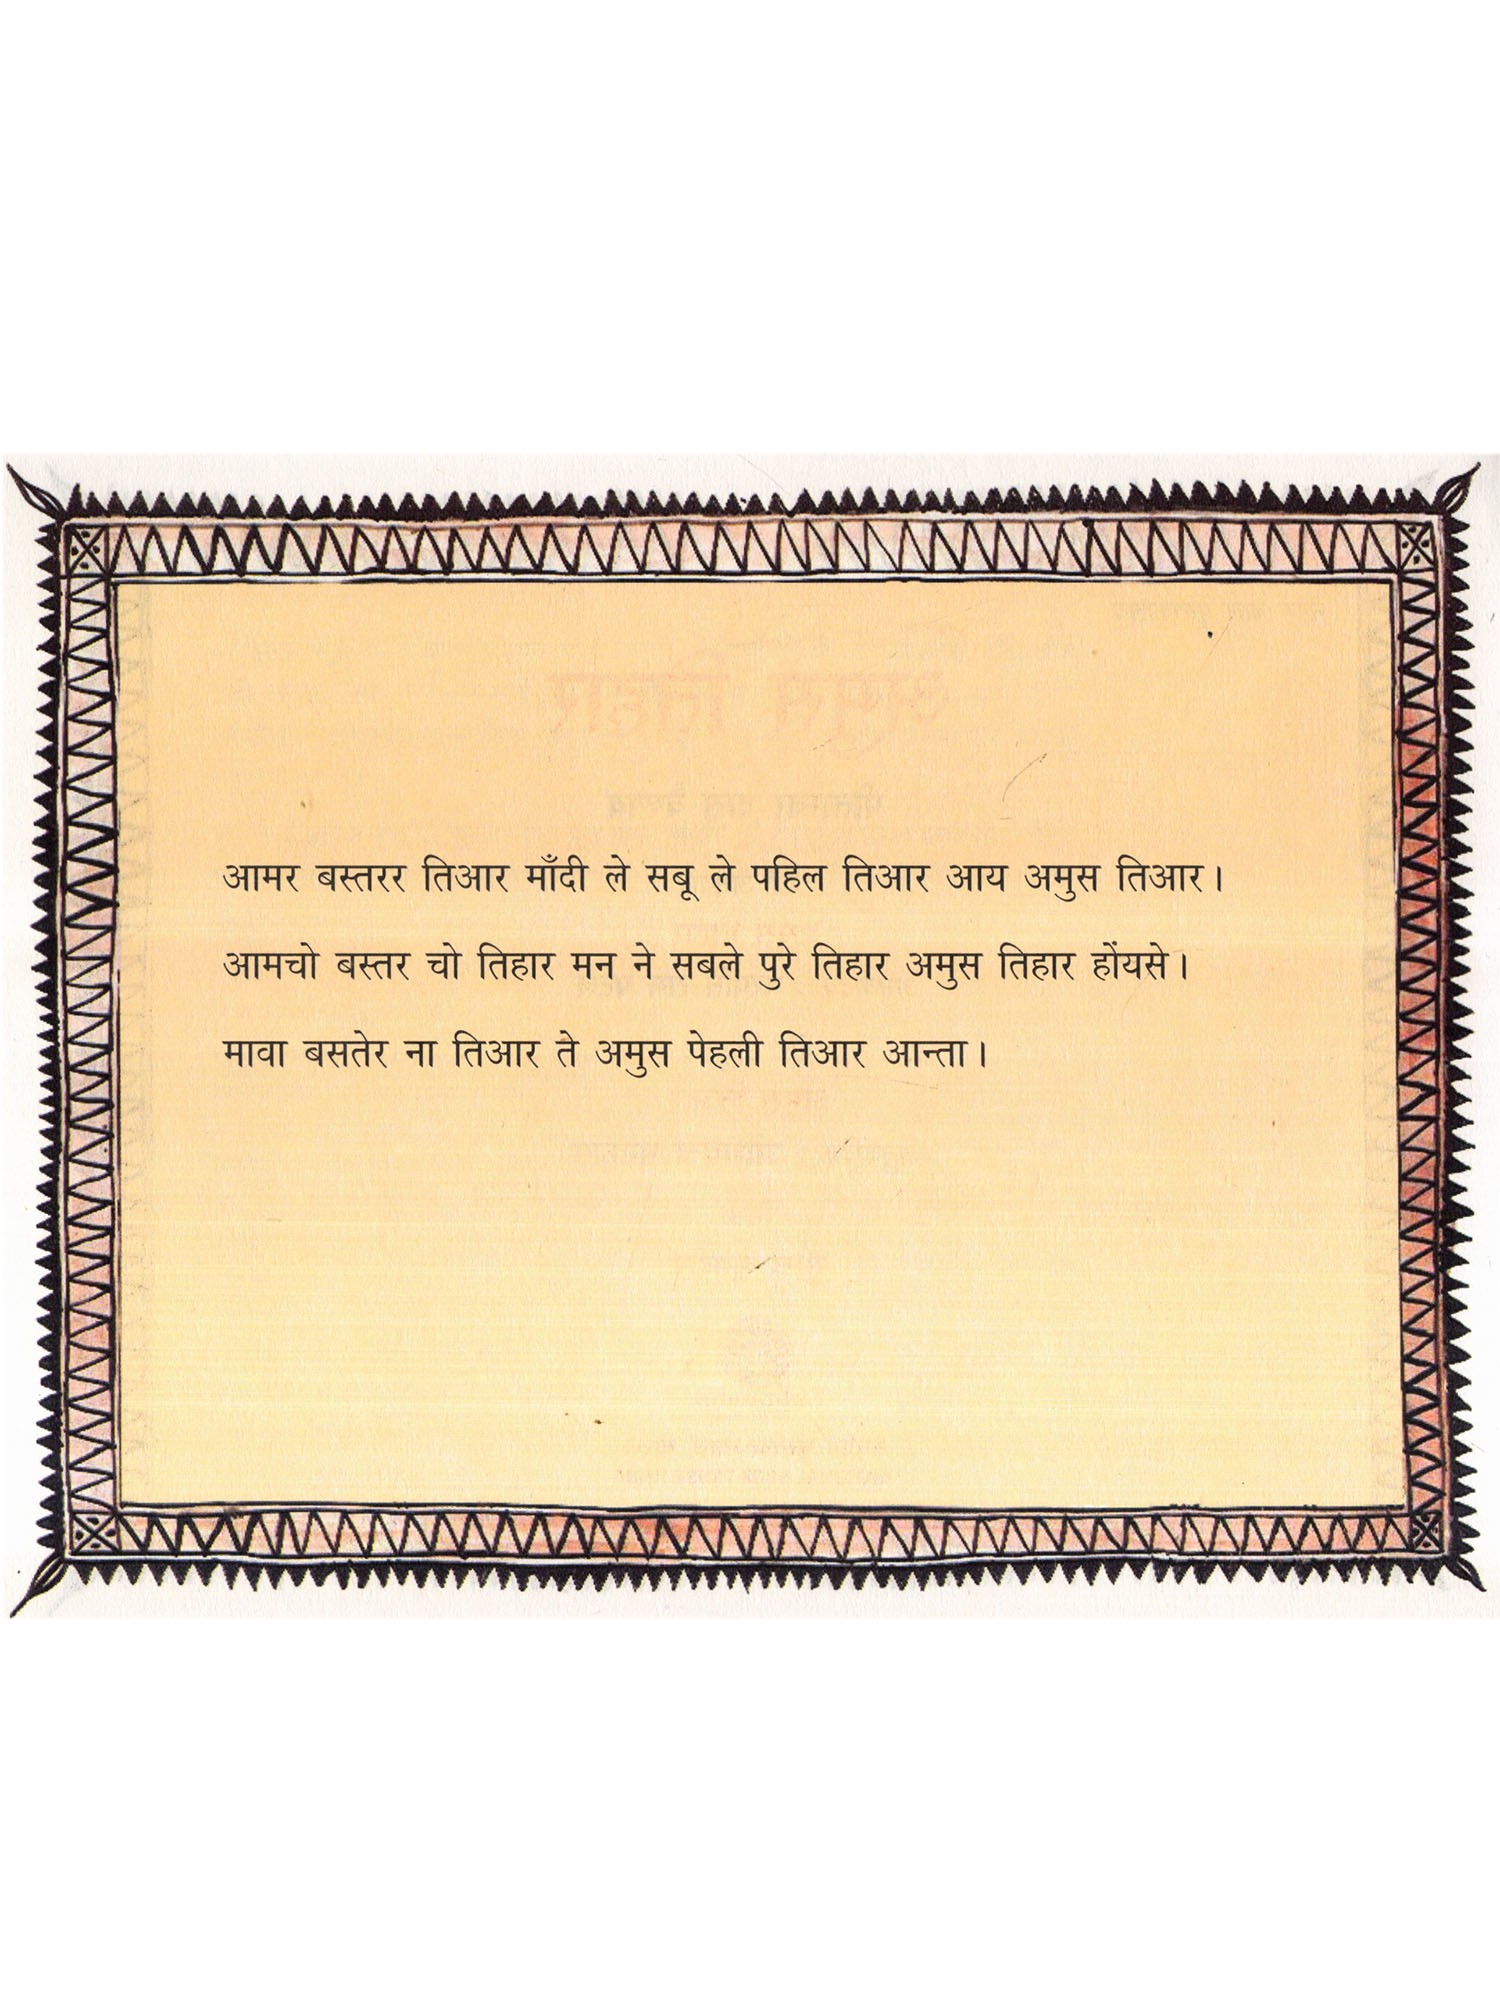 आमर बस्तरर तिआर माँदी ले सबू ले पहिल तिआर आय अमुस तिआर।
आमचो बस्तर चो तिहार मन ने सबले पुरे तिहार अमुस तिहार होंयसे।
मावा बसतेर ना तिआर ते अमुस पेहली तिआर आन्ता।